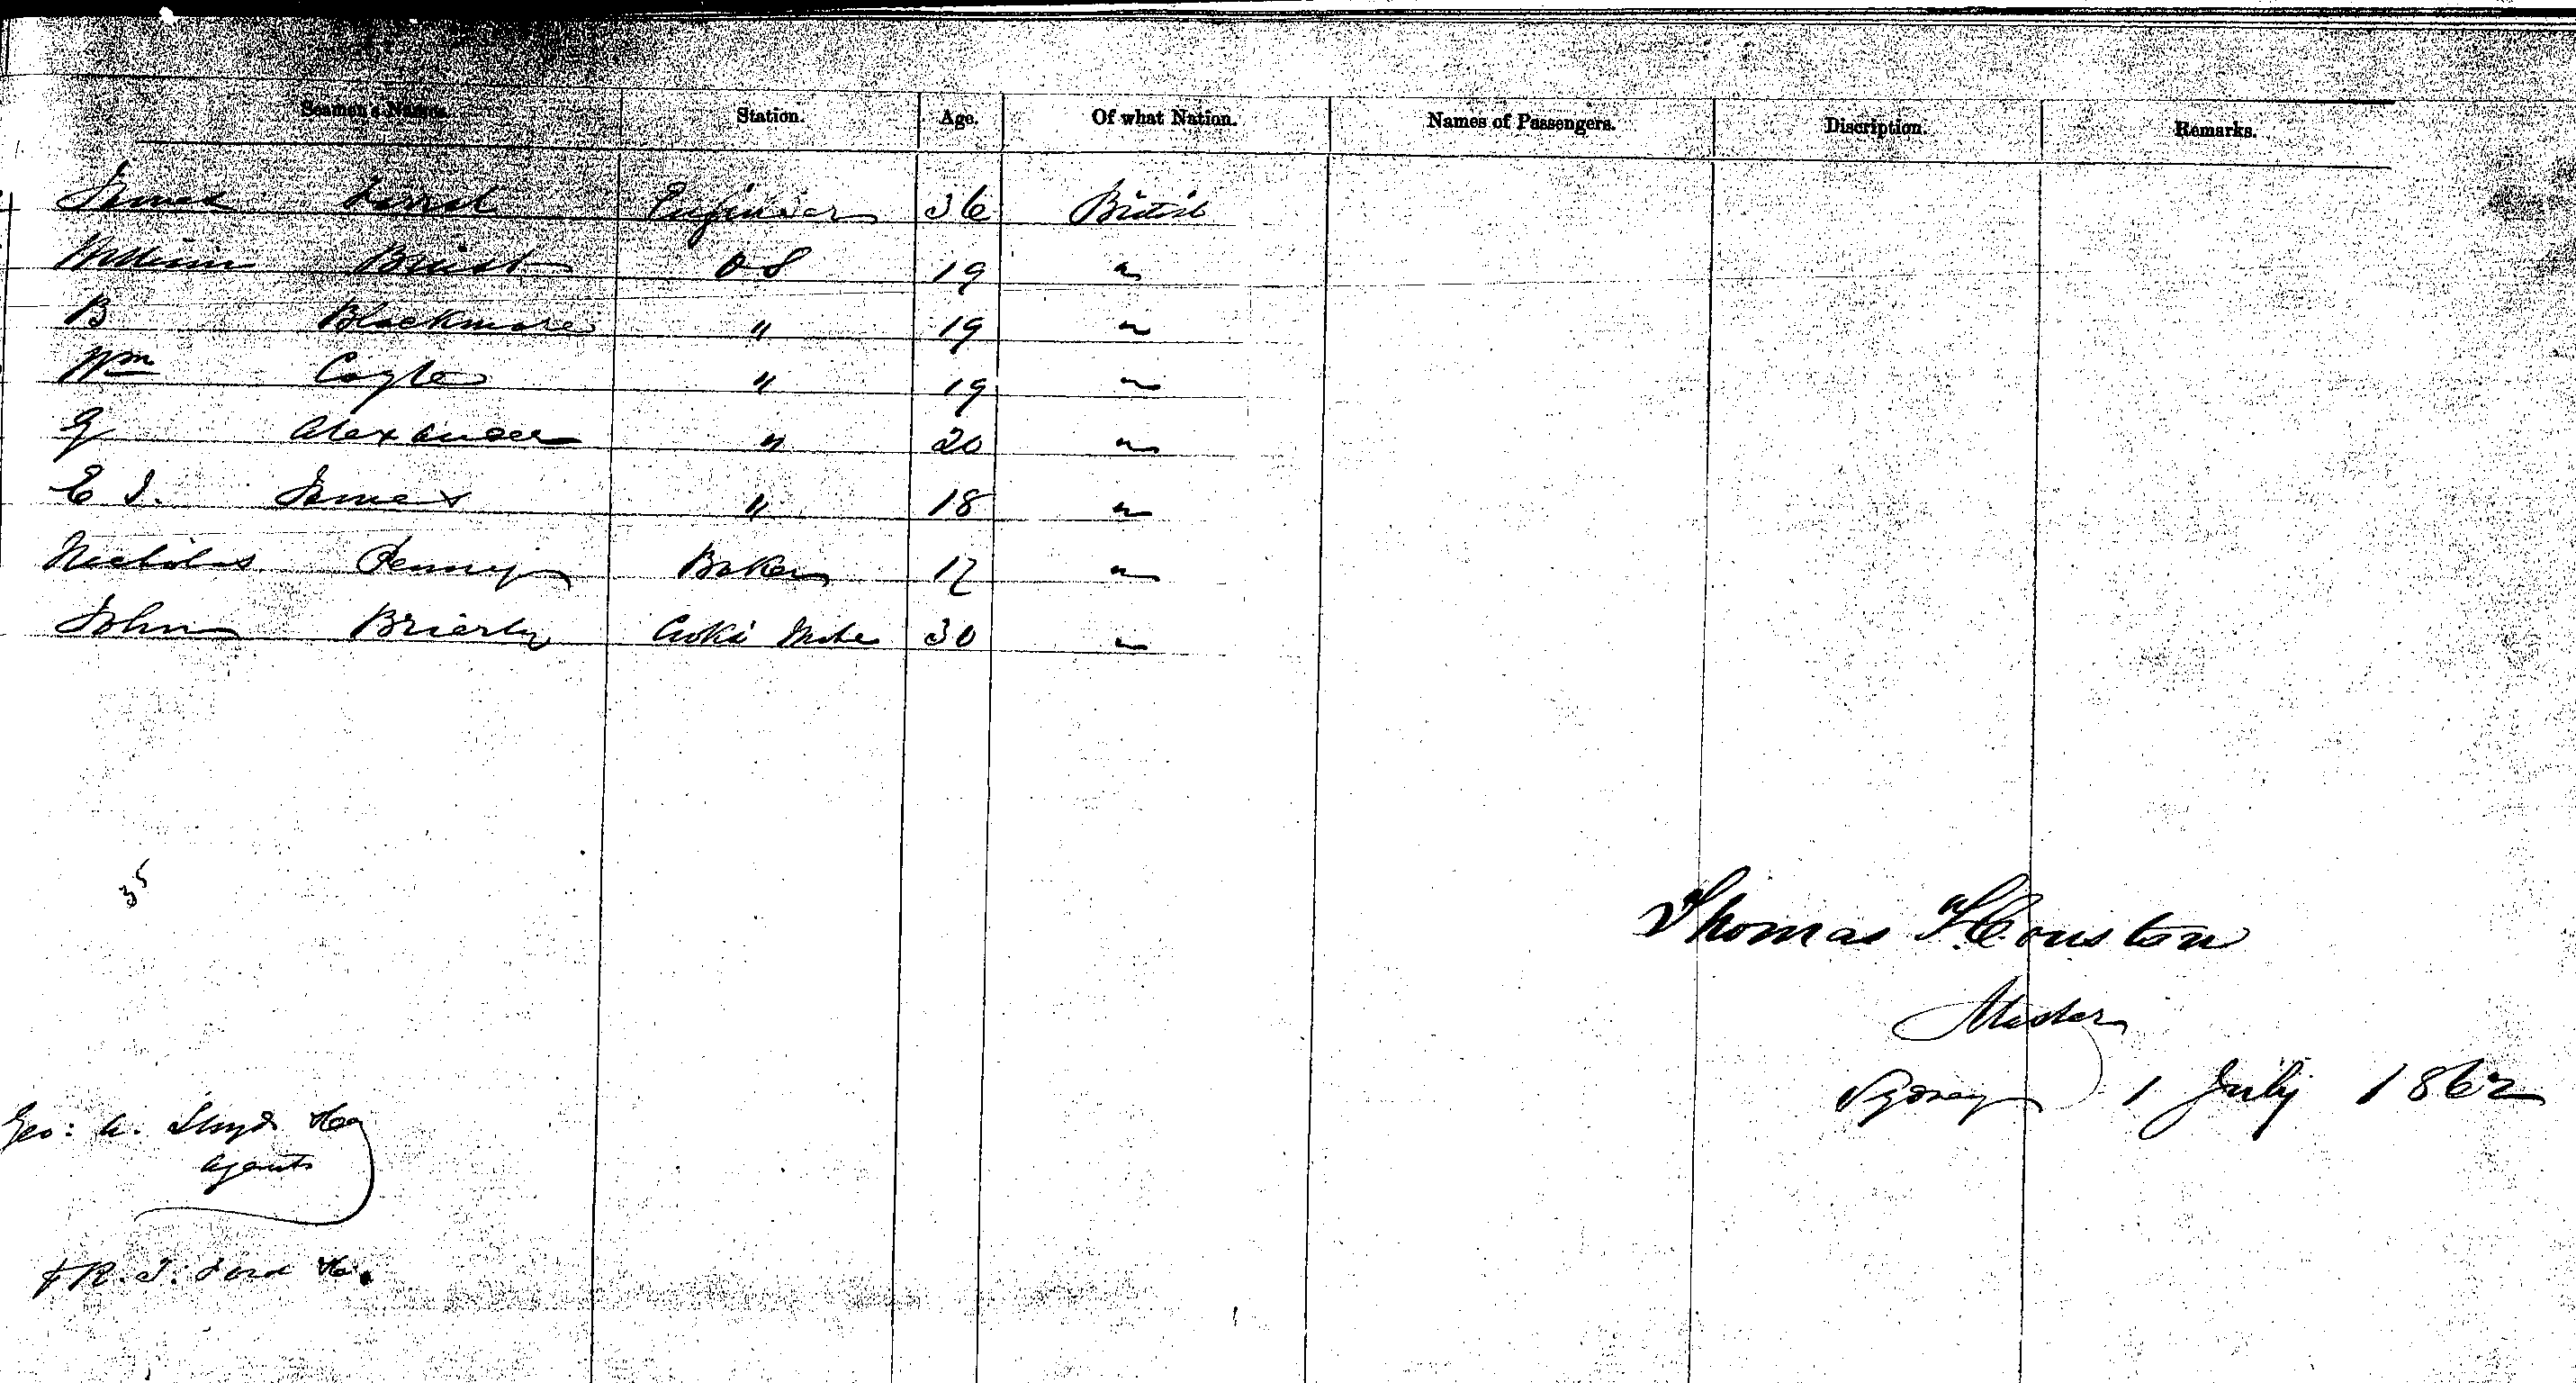 Seamen's Names. Station. Age. Of what Nation. Names of Passengers. Discription. Remarks.
James Engineer 36 British
William Buist O S 19 "
B Blackmore " 19 "
Wm Coyle " 19 "
G Alexander " 20 "
E J. James " 18 "
Nicholas Penny Baker 17 "
John Brierly Cooks Mate 30 "
35
Thomas Houston
Master
Sydney 1 July 1862
Geo: A. Lloyd & Co
Agents
R. T. Ford & Co.